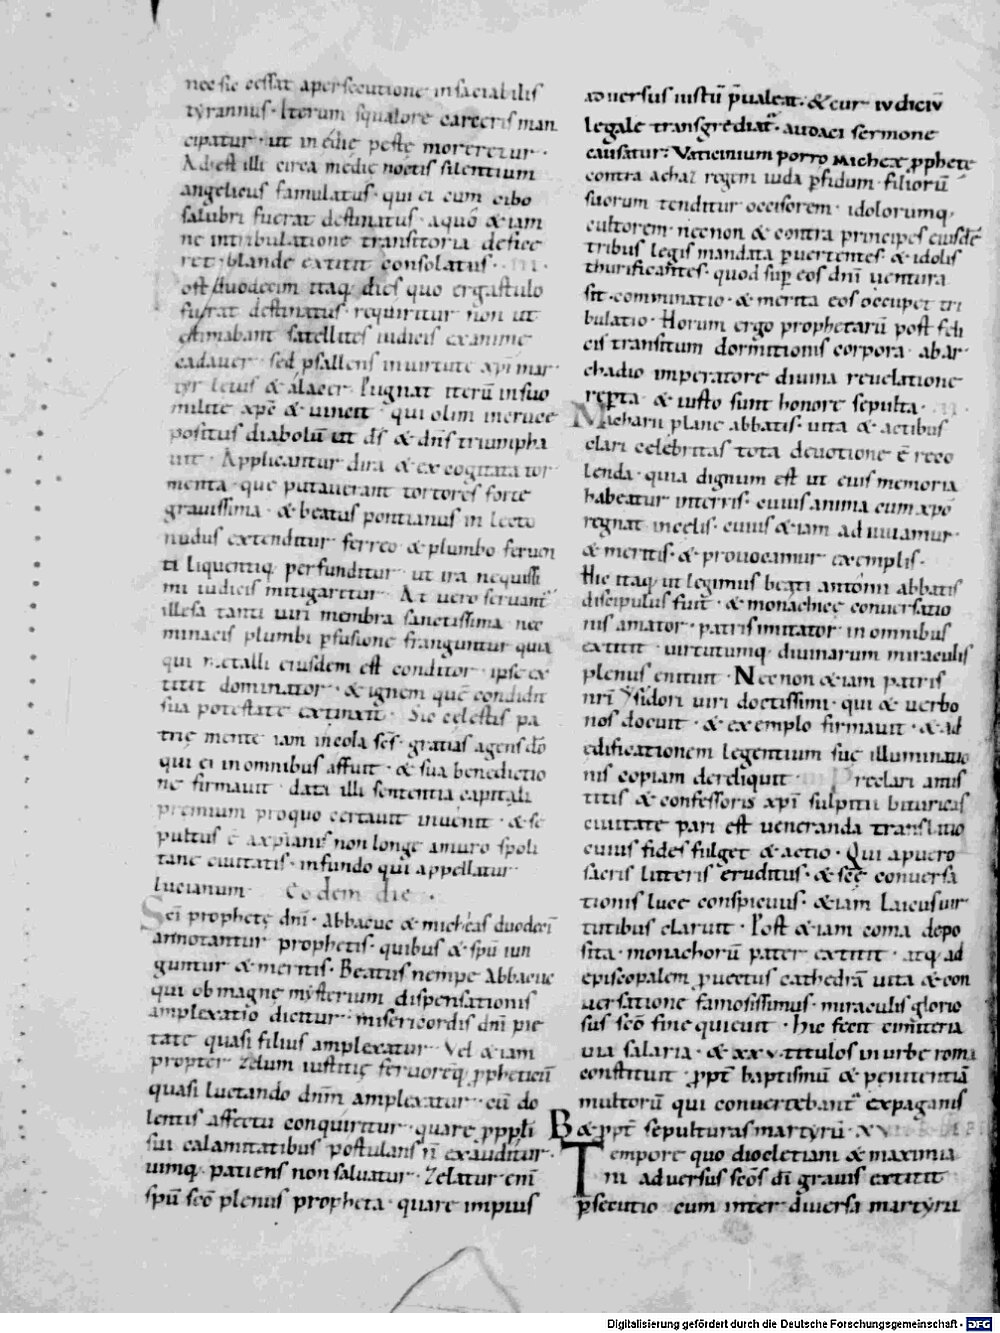 nec sic cessat apersecutione insaciabilis
tyrannus · Iterum squalore carceris man
cipatur · ut inedię peste moreretur ·
Adest illi circa medię noctis silentium
angelicus famulatus · qui ei cum cibo
salubri fuerat destinatus · aquo &iam
ne intribulatione transitoria defice
ret · blande extitit consolatus ·
ost duodecim itaq; dies quo ergastulo
fuerat destinatus · requiritur non ut
estimabant satellites iudicis exanime
cadauer · sed psallens inuirtute xpi mar
tyr leuis & alacer · Pugnat iterū insuo
milite xpc & uincit · qui olim incruce
positus diabolū ut ds̄ & dn̄s triumpha
uit · Applicantur dira & excogitata tor
menta · que putauerant tortores forte
grauissima · & beatus pontianus in lecto
nudus extenditur ferreo & plumbo feruen
ti liquentiq; perfunditur · ut ira nequissi
mi iudicis mitigaretur · At uero seruant̄
illesa tanti uiri membra sanctissima · nec
minacis plumbi ꝑfusione franguntur quia
qui metalli eiusdem est conditor · ipse ex
titit dominator · & ignem quē condidit
sua potestate extinxit · Sic celestis pa
trię mente iam incola sc̄s · gratias agens dō
qui ei inomnibus affuit · & sua benedictio
ne firmauit · data illi sententia capitali
premium proquo certauit inuenit · & se
pultus ē axpianis non longe amuro spoli
tane ciuitatis · infundo qui appellatur
lucianum · Eodem die ·
Sc̄i prophetę dn̄i · abbacuc & micheas duodeci
annotantur prophetis · quibus & spū iun
guntur & meritis · Beatus nempe Abbacuc
qui ob magnę mysterium dispensationis
amplexatio dicitur · misericordis dn̄i pie
tate quasi filius amplexatur · Vel &iam
propter zelum iustitię feruoreq; ꝓpheticū
quasi luctando dn̄m amplexatur · cū do
lentis affectu conquiritur · quare ꝓppli
sui calamitatibus postulans n̄ exauditur ·
uimq; patiens non saluatur · Zelatur eni
spū scō plenus propheta · quare impius
aduersus iustū p̄ualeat · & cur iudiciū
legale transgrediat̄ · audaci sermone
causatur : Vaticinium porro Micheę ꝓphete
contra achaz regem iuda ꝑfidum · filiorū
suorum tenditur occisorem · idolorumq;
cultorem necnon & contra principes eiusdē
tribus legis mandata ꝑuertentes · & idolis
thurificantes · quod suꝑ eos dn̄i uentura
sit comminatio · & merita eos occupet tri
bulatio · Horum ergo prophetarū post feli
cis transitum dormitionis corpora · abar
chadio imperatore diuina reuelatione
reꝑta · & iusto sunt honore sepulta ·
Macharii plane abbatis · uita & actibus
clari celebritas tota deuotione ē reco
lenda · quia dignum est ut eius memoria
habeatur interris · cuius anima cum xpō
regnat incelis · cuius &iam adiuuamur
& meritis · & prouocamur exemplis ·
Hic itaq; ut legimus beati antonii abbatis
discipulus fuit · & monachicę conuersatio
nis amator · patris imitator in omnibus
extitit · uirtutumq; diuinarum miraculis
plenus enituit · Necnon &iam patris
nr̄i ysidori uiri doctissimi · qui & uerbo
nos docuit · & exemplo firmauit · & ad
edificationem legentium suę illuminatio
nis copiam dereliquit · Preclari antis
titis & confessoris xpi sulpitii bituricas
ciuitate pari est ueneranda translatio
cuius fides fulget & actio · Qui apuero
sacris litteris eruditus · & scē conuersa
tionis luce conspicuus · &iam laicus uir
tutibus claruit · Post &iam coma depo
sita · monachorū pater extitit · atq; ad
episcopalem ꝓuectus cathedrā uita & con
uersatione famosissimus · miraculis glorio
sus scō fine quieuit · Hic fecit cimiteria
uia salaria · & xxv · titulos in urbe roma
constituit · ꝓpt̄ baptismū & penitentiā
multorū qui conuertebant̄ expaganis
& ꝓpt̄ sepulturas martyrū · XV
Tempore quo diocletiani & maximia
ni aduersus scōs dī grauis extitit
ꝑsecutio · cum inter diuersa martyru